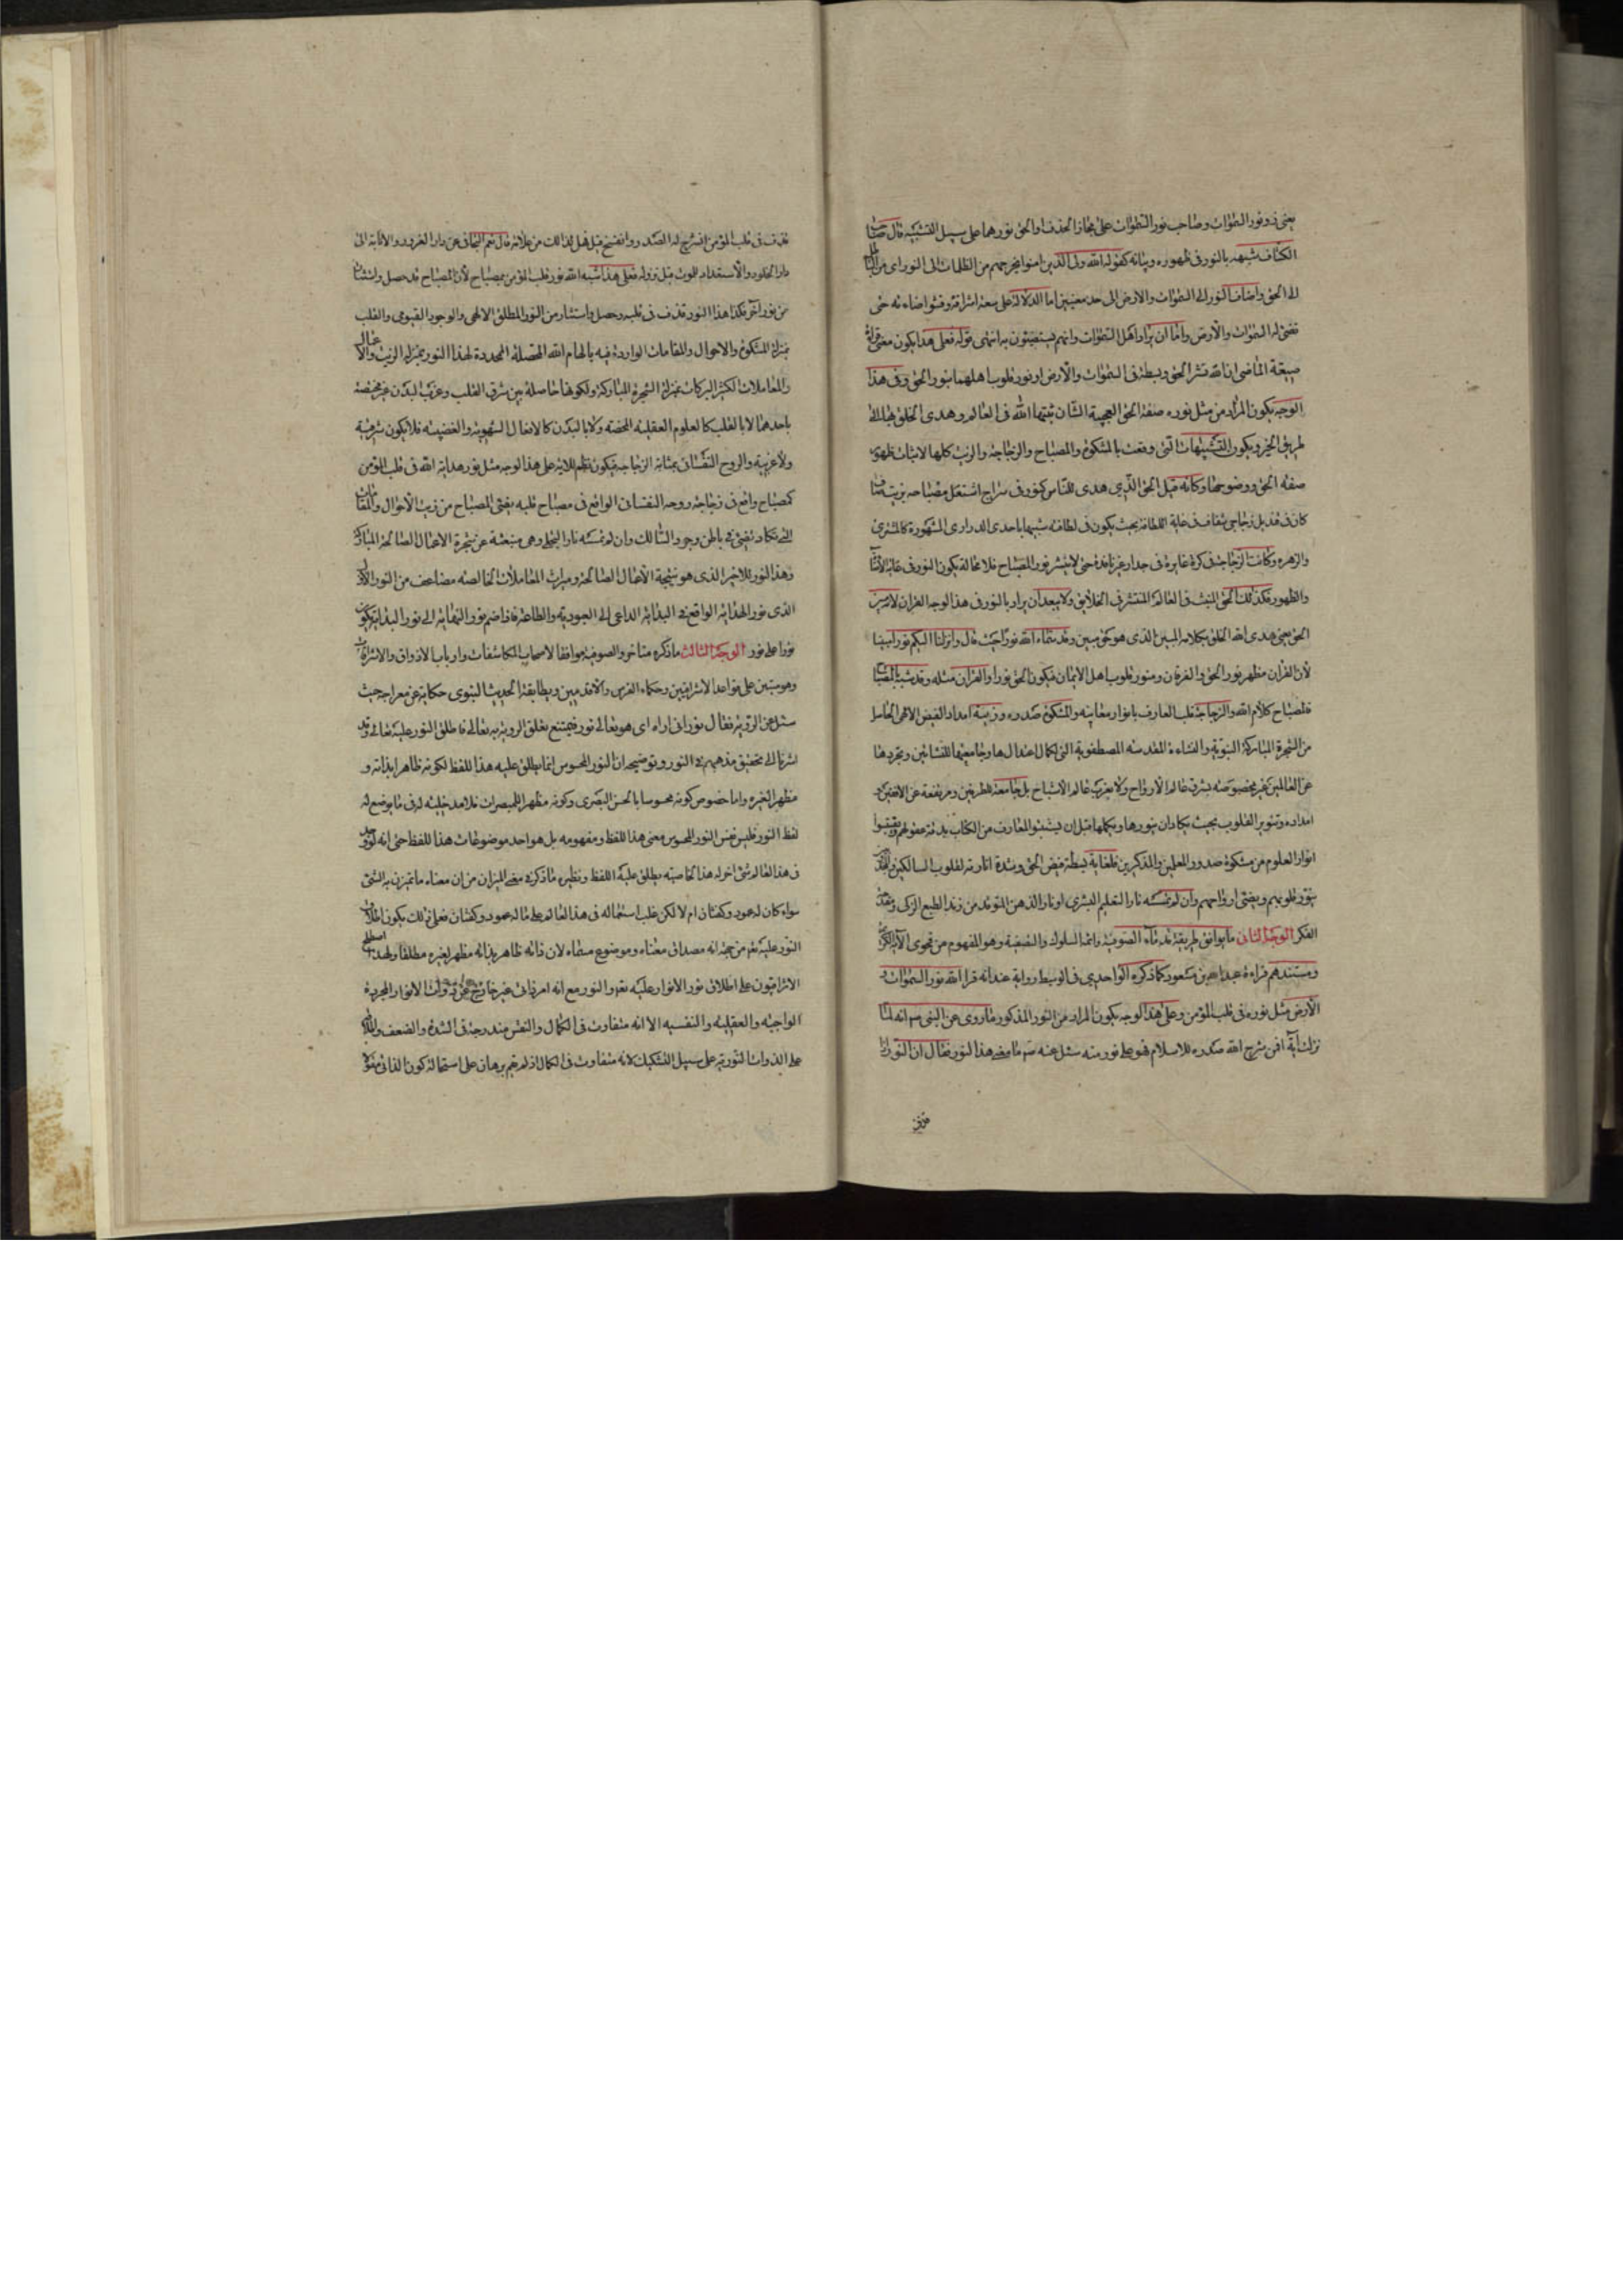 يعنى ذو نور السموات وصاحب نور السموات على مجاز الحذف او الحق نورهما على سبيل التشبيه قال صاحب
الكشاف شبهه بالنور فى ظهوره وبيانه كقوله الله ولى الذين امنوا يخرجهم من الظلمات الى النور اى من الباطل
الى الحق واضاف النور الى السموات والارض الى حد معنيين اما الدلالة على سعة اشراقه وفشو اضاءته حتى
تضئ له السموات والأرض واما ان يراد اهل السموات وانهم يستضيئون به انتهى قوله فعلى هذا يكون معنى
صيغة الماضى ان الله نشر الحق وبسطه فى السموات والأرض او نور قلوب اهلهما بنور الحق وفى هذا
الوجه يكون المراد من مثل نوره صفة الحق العجيبة الشان يثبتها الله فى العالم وهدى الخلق بها الى
طريق الخير ويكون التشبيهات التى وقعت بالمشكوة والمصباح والزجاجة والزيت كلها لاثبات ظهور
صفة الحق ووضوحها وكانه قيل الحق الذى هدى للناس كنور فى سراج اشتعل مصباحه بزيت صاف
كان فى قنديل زجاجى شفاف فى غاية اللطافة بحيث يكون فى لطافته شبيها باحدى الدرارى المشهورة كالمشترى
والزهره وكانت الزجاجة فى كرة غايرة فى جدار غير نافذة حتى لا ينتشر نور المصباح فلا محالة يكون النور فى غاية
والظهور فكذلك الحق المنبث فى العالم المنتشر فى الخلايق ولا يبعد ان يراد بالنور فى هذا الوجه القران
الحق يعنى هدى الله الخلق بكلامه المبين الذى هو حق مبين وقد سماه الله نورا حيث قال وانزلنا اليكم نورا مبينا
لأن القرآن مظهر نور الحق والفرقان ومنور قلوب اهل الايمان فيكون الحق نورا والقرآن مثله وقد شبه بالمصباح
فالمصباح كلام الله والزجاجة قلب العارف بانوار معاينه والمشكوة صدره وزيته امداد الفيض الالهى الحاصل
من الشجرة المباركة النبوية والنشاءة المقدسه المصطفوية التى لكمال اعتدالها وجامعيتها للنشاتين وتجردها
عن العالمين غير مخصوصه بشرق عالم الأرواح ولا بغرب عالم الاشباح بل جامعة للطرفين ومرتفعة عن الافقين
امداده وتنوير القلوب بحيث يكاد ان ينورها ويكملها قبل ان يستنبؤ المعارف من الكتاب بدقة عقولهم ويقتبسوا
انوار العلوم من مشكوة صدور المعلمين والمذكرين فلغاية بسطة فيض الحق وشدة انارته لقلوب السالكين
ينور قلوبهم ويضئ ارواحهم وان لم تمسسه نار التعليم البشرى او نار الذهن المتوقد من زند الطبع الزكى
الفكر الوجه الثانى ما يوافق طريقة قدماء الصوفية وائمة السلوك والشيعة وهو المفهوم من فحوى الآية
ومستندهم قراءة عبد الله بن مسعود كما ذكره الواحدى فى الوسيط رواية عنه انه قرا الله نور السموات و
الأرض مثل نوره فى قلب المؤمن وعلى هذا الوجه يكون المراد من النور المذكور ما روى عن النبى ص انه لما
نزلت آية افمن شرح الله صدره للاسلام فهو على نور منه سئل عنه ص ما معنى هذا النور فقال ان النور اذا
قذف
قذف فى قلب المؤمن انشرح له الصدر وانفسخ قيل فهل لذالك من علامة قال نعم التجافى عن دار الغرور والانابة الى
دار الخلود والأستعداد للموت قبل نزوله فعلى هذا شبه الله نور قلب المؤمن بمصباح لأن المصباح قد حصل
من نور آخر فكذا هذا النور قذف فى قلبه وحصل واستنار من النور المطلق الالهى والوجود القيومى والقلب
بمنزلة المشكوة والاحوال والمقامات الواردة فيه بالهام الله المحصلة المجددة لهذا النور بمنزلة الزيت والاعمال
والمعاملات لكثير البركات بمنزلة الشجرة المباركة ولكونها حاصلة بين شرق القلب وغرب البدن غير مختصة
باحدهما لا بالقلب كالعلوم العقلية المحضه ولا بالبدن كالافعال الشهوية والغضبيه فلا يكون شرقية
ولا غربية والروح النفسانى بمثابة الزجاجه فيكون نظم الاية على هذا الوجه مثل نور هداية الله فى قلب المؤمن
كمصباح واقع فى زجاجة روحه النفسانى الواقع فى مصباح قلبه يضئ المصباح من زيت الأحوال والمقامات
التى تكاد تضئ فى باطن وجود السالك وان لم تمسسه نار التجلى وهى منبعثة عن شجرة الاعمال الصالحة المباركة
وهذا النور للاخير الذى هو نتيجة الأعمال الصالحة وميراث المعاملات الخالصه مضاعف من النور الأول
الذى نور الهداية الواقع فى البداية الداعى الى العبودية والطاعة فاذا ضم نور النهاية الى نور البداية يكون
نورا على نور الوجه الثالث ما ذكره متاخروا الصوفية موافقا لاصحاب المكاشفات وارباب الاذواق والاشراقات
وهو مبتنى على قواعد الاشراقيين وحكماء الفرس والأقدمين ويطابقه الحديث النبوى حكاية عن معراجه حيث
سئل عن الروية فقال نورانى اراه اى هو تعالى نور فيمتنع تعلق الروية به تعالى فاطلق النور عليه تعالى وقد
اشرنا الى تحقيق مذهبهم فى النور وتوضيحه ان النور المحسوس انما يطلق عليه هذا اللفظ لكونه ظاهرا بذاته و
مظهرا لغيره واما خصوص كونه محسوسا بالحس البصرى وكونه مظهرا للمبصرات فلا مدخلية له فى ما يوضع له
لفظ النور فليس نفس النور المحسوس معنى هذا اللفظ ومفهومه بل هو احد موضوعات هذا اللفظ حتى انه لو وجد
فى هذا العالم شئ اخر له هذا الخاصية يطلق عليه اللفظ ونظيره ما ذكر فى معنى الميزان من ان معناه ما يتزن به الشئ
سواء كان له عمود وكفتان ام لا لكن غلب استعماله فى هذا العالم على ما له عمود وكفتان فعلى ذلك يكون اطلاق
النور عليه تعم من جهة انه مصداق معناه وموضوع مسماه لان ذاته ظاهر بذاته مظهر لغيره مطلقا ولهذا اصطلح
الاشراقيون على اطلاق نور الانوار عليه تعم والنور مع انه امر ذاتى غير خارج عن ذوات الانوار المجردة
الواجبيه والعقلية والنفسيه الا انه متفاوت فى الكمال والنقص مندرجة فى الشدة والضعف
على الذوات النورية على سبيل التشكيك لانه متفاوت فى الكمال اذ لم يقم برهان على استحالة كون الذاتى مقولا